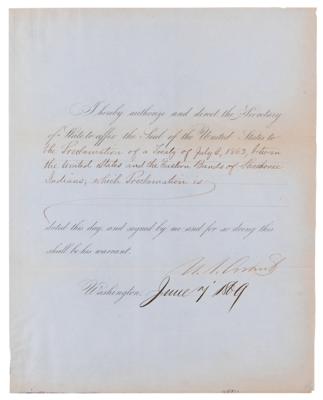 I hereby authorize and direct the Secretary
of State to affix the Seal of the United States to
the Proclamation of a Treaty of July 2, 1863, between
the United States and the Eastern Bands of Shoshonee
Indians; which Proclamation is
dated this day, and signed by me and for so doing this
shall be his warrant.
U. S. Grant
Washington, June 7 1869